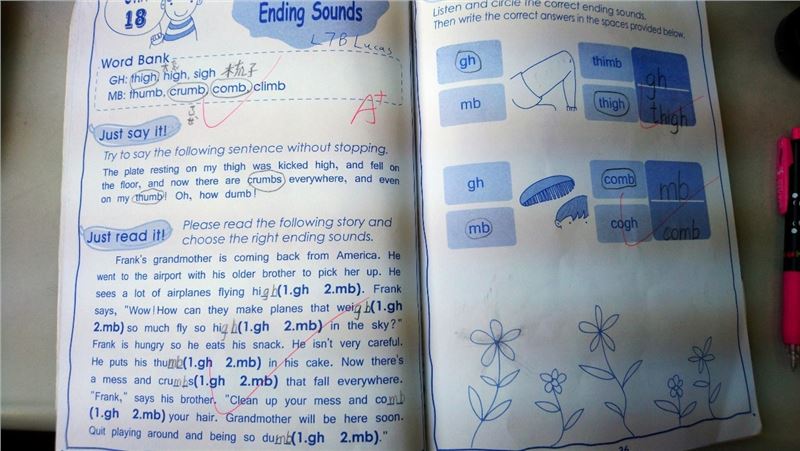 18
Ending Sounds
L7B Lucas
Word Bank
梳子
GH: thigh, high, sigh
MB: thumb, crumb, comb, climb
A+
Just say it!
Try to say the following sentence without stopping.
The plate resting on my thigh was kicked high, and fell on
the floor, and now there are crumbs everywhere, and even
on my thumb! Oh, how dumb!
Just read it!
Please read the following story and
choose the right ending sounds.
Frank's grandmother is coming back from America. He
went to the airport with his older brother to pick her up. He
sees a lot of airplanes flying high(1.gh 2.mb). Frank
says, "Wow! How can they make planes that weigh(1.gh
2.mb) so much fly so high(1.gh 2.mb) in the sky?"
Frank is hungry so he eats his snack. He isn't very careful.
He puts his thumb(1.gh 2.mb) in his cake. Now there's
a mess and crumbs(1.gh 2.mb) that fall everywhere.
"Frank," says his brother. "Clean up your mess and comb
(1.gh 2.mb) your hair. Grandmother will be here soon.
Quit playing around and being so dumb(1.gh 2.mb)."
Listen and circle the correct ending sounds.
Then write the correct answers in the spaces provided below.
gh
thimb
gh
mb
thigh
thigh
gh
comb
mb
mb
cogh
comb
36